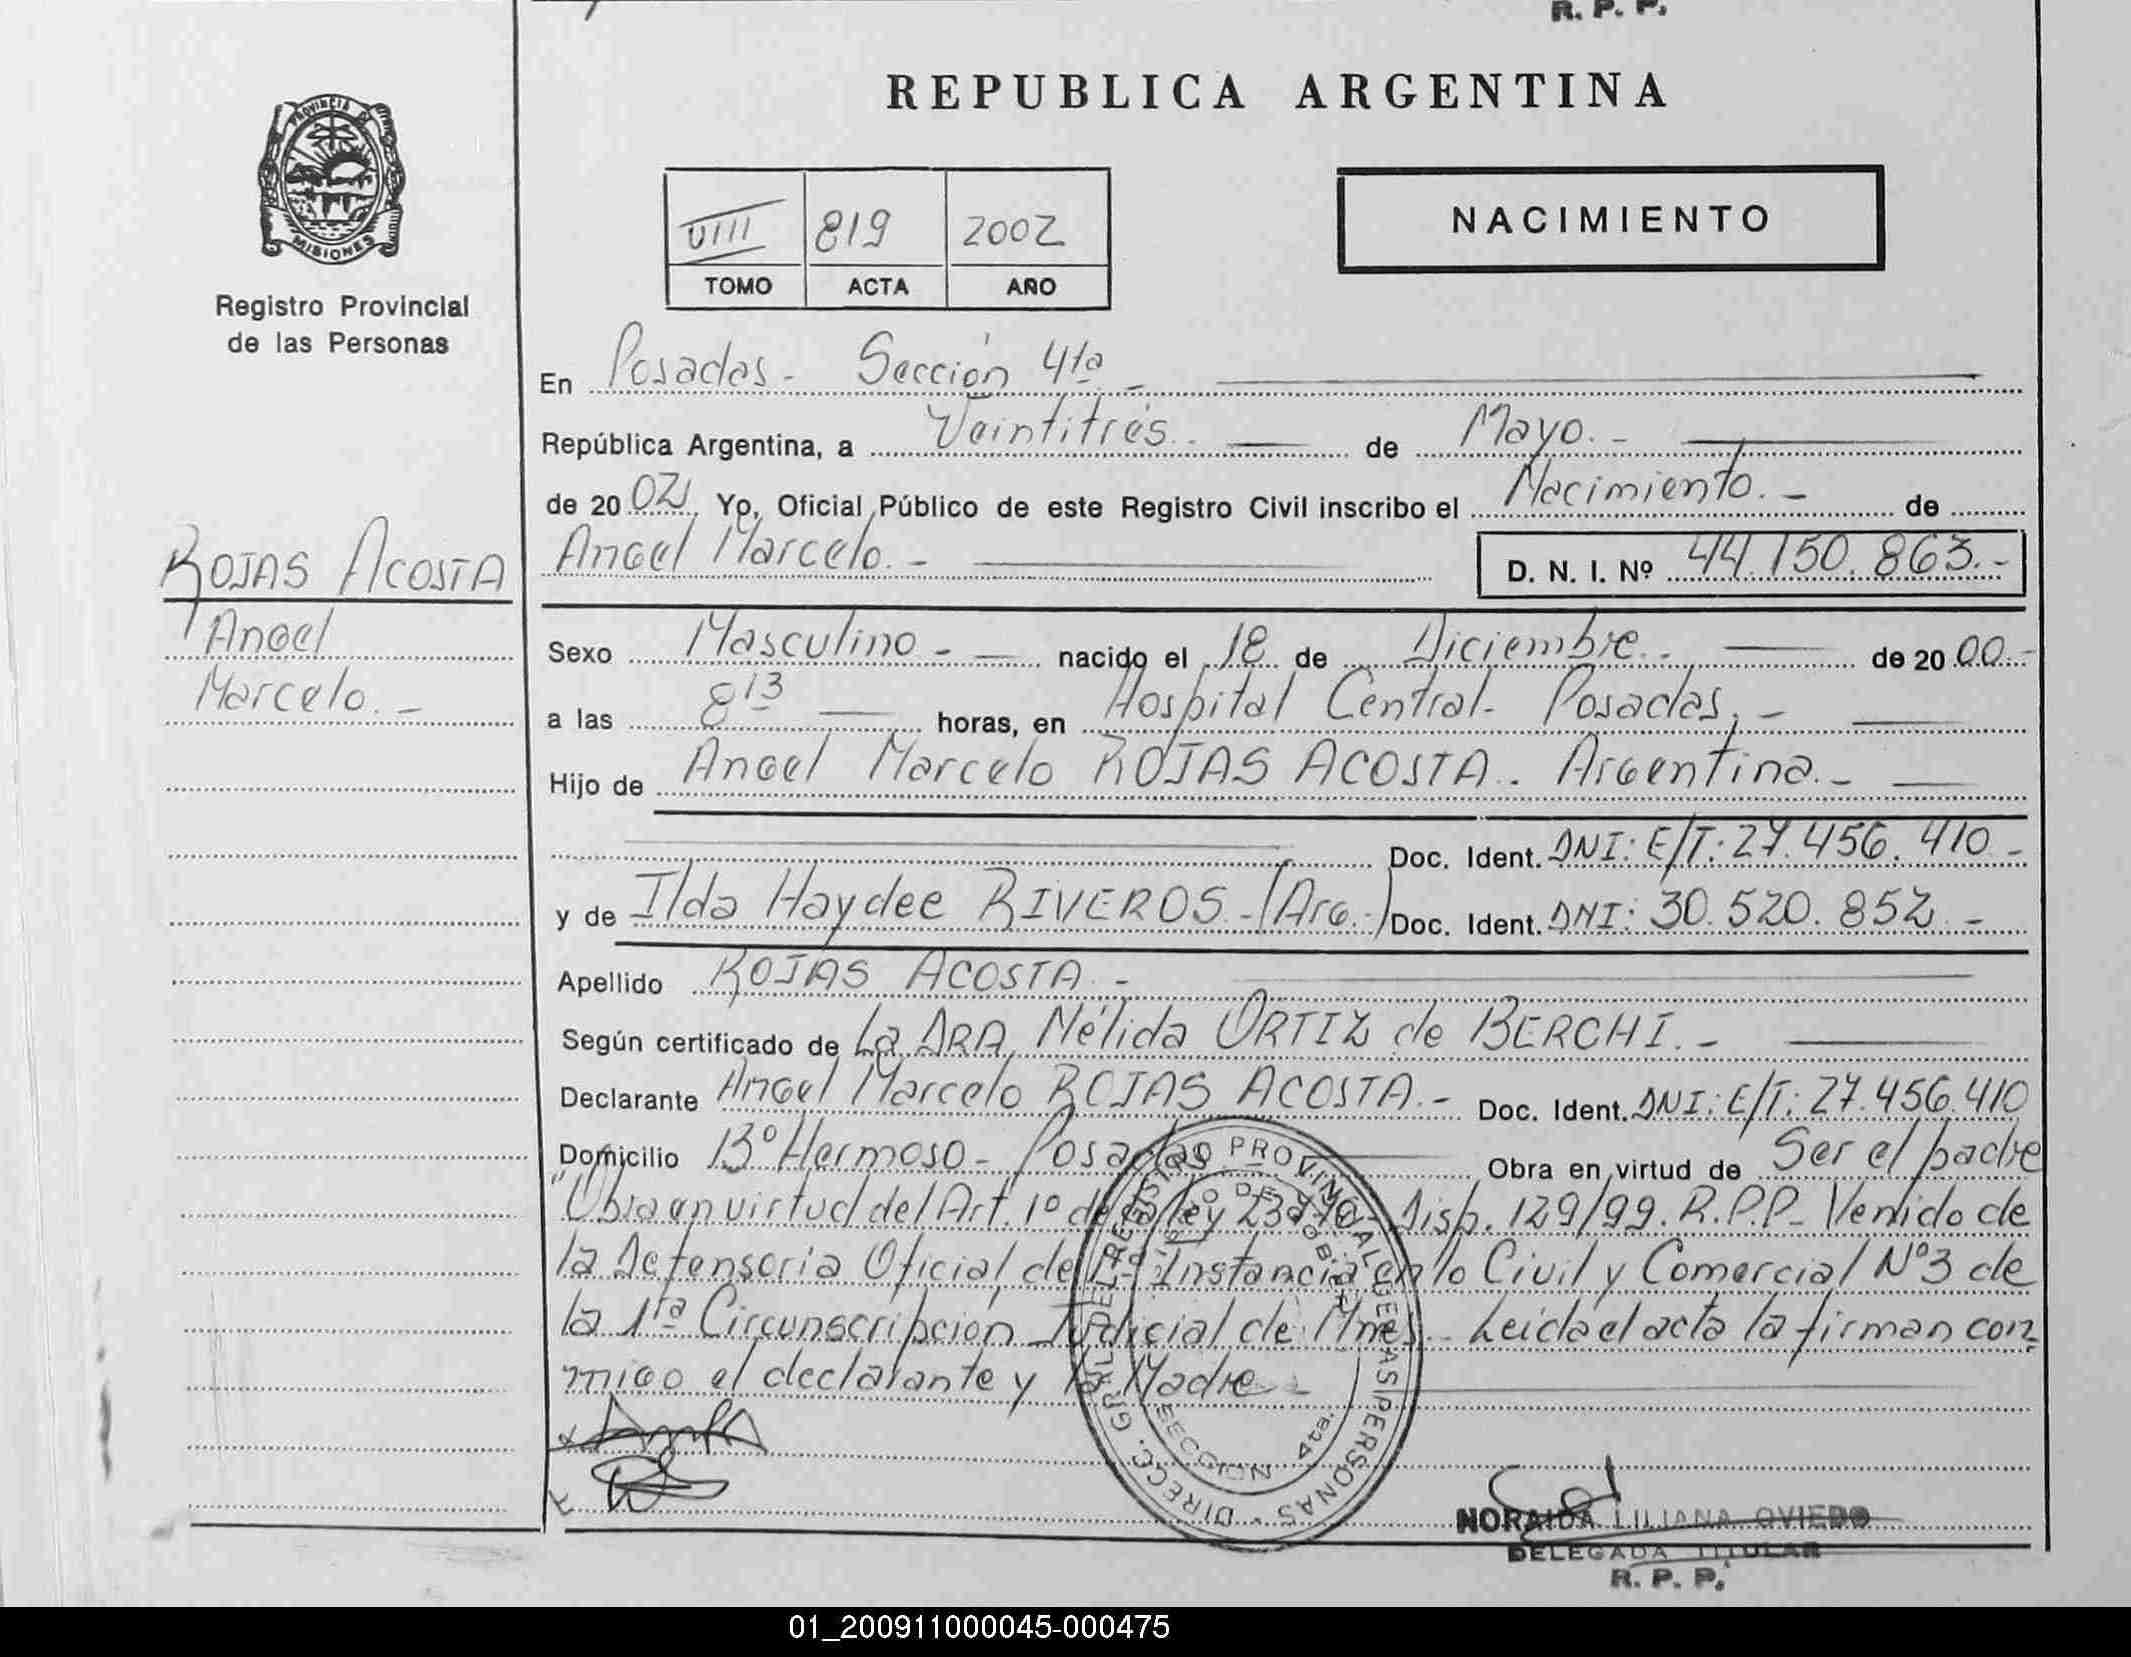 R. P. P.
REPUBLICA ARGENTINA
PROVINCIA DE
MISIONES
Registro Provincial
de las Personas
VIII 819 2002
TOMO ACTA AÑO
NACIMIENTO
En Posadas - Sección 4ta -
República Argentina, a Veintitrés.- de Mayo.-
de 2002. Yo, Oficial Público de este Registro Civil inscribo el Nacimiento.- de
Angel Marcelo.- D. N. I. Nº 44.150.863.-
ROJAS ACOSTA
Angel
Marcelo.-
Sexo Masculino - nacido el 18 de Diciembre.- de 2000.-
a las 8 13 horas, en Hospital Central- Posadas.-
Hijo de Angel Marcelo ROJAS ACOSTA. Argentina.-
Doc. Ident. DNI: E/T: 27.456.410 -
y de Ilda Haydee RIVEROS.- (Arg.-) Doc. Ident. DNI: 30.520.852.-
Apellido ROJAS ACOSTA.-
Según certificado de La DRA. Nélida ORTIZ de BERCHI.-
Declarante Angel Marcelo ROJAS ACOSTA.- Doc. Ident. DNI: E/T: 27.456.410
Domicilio Bº Hermoso - Posadas Obra en virtud de Ser el padre
"Obra en virtud del Art. 1º de la ley Disp. 129/99. R.P.P.- Venido de
la Defensoria Oficial de Instancia en lo Civil y Comercial Nº 3 de
la 1ra Circunscripcion Judicial de Mnes.- Leida el acta la firman con-
migo el declarante y la Madre.-
DIRECC. GRAL. DEL REGISTRO PROVINCIAL DE LAS PERSONAS
SECCION 4ta.
NORAIDA LILIANA OVIEDO
DELEGADA TITULAR
R. P. P.
01_200911000045-000475